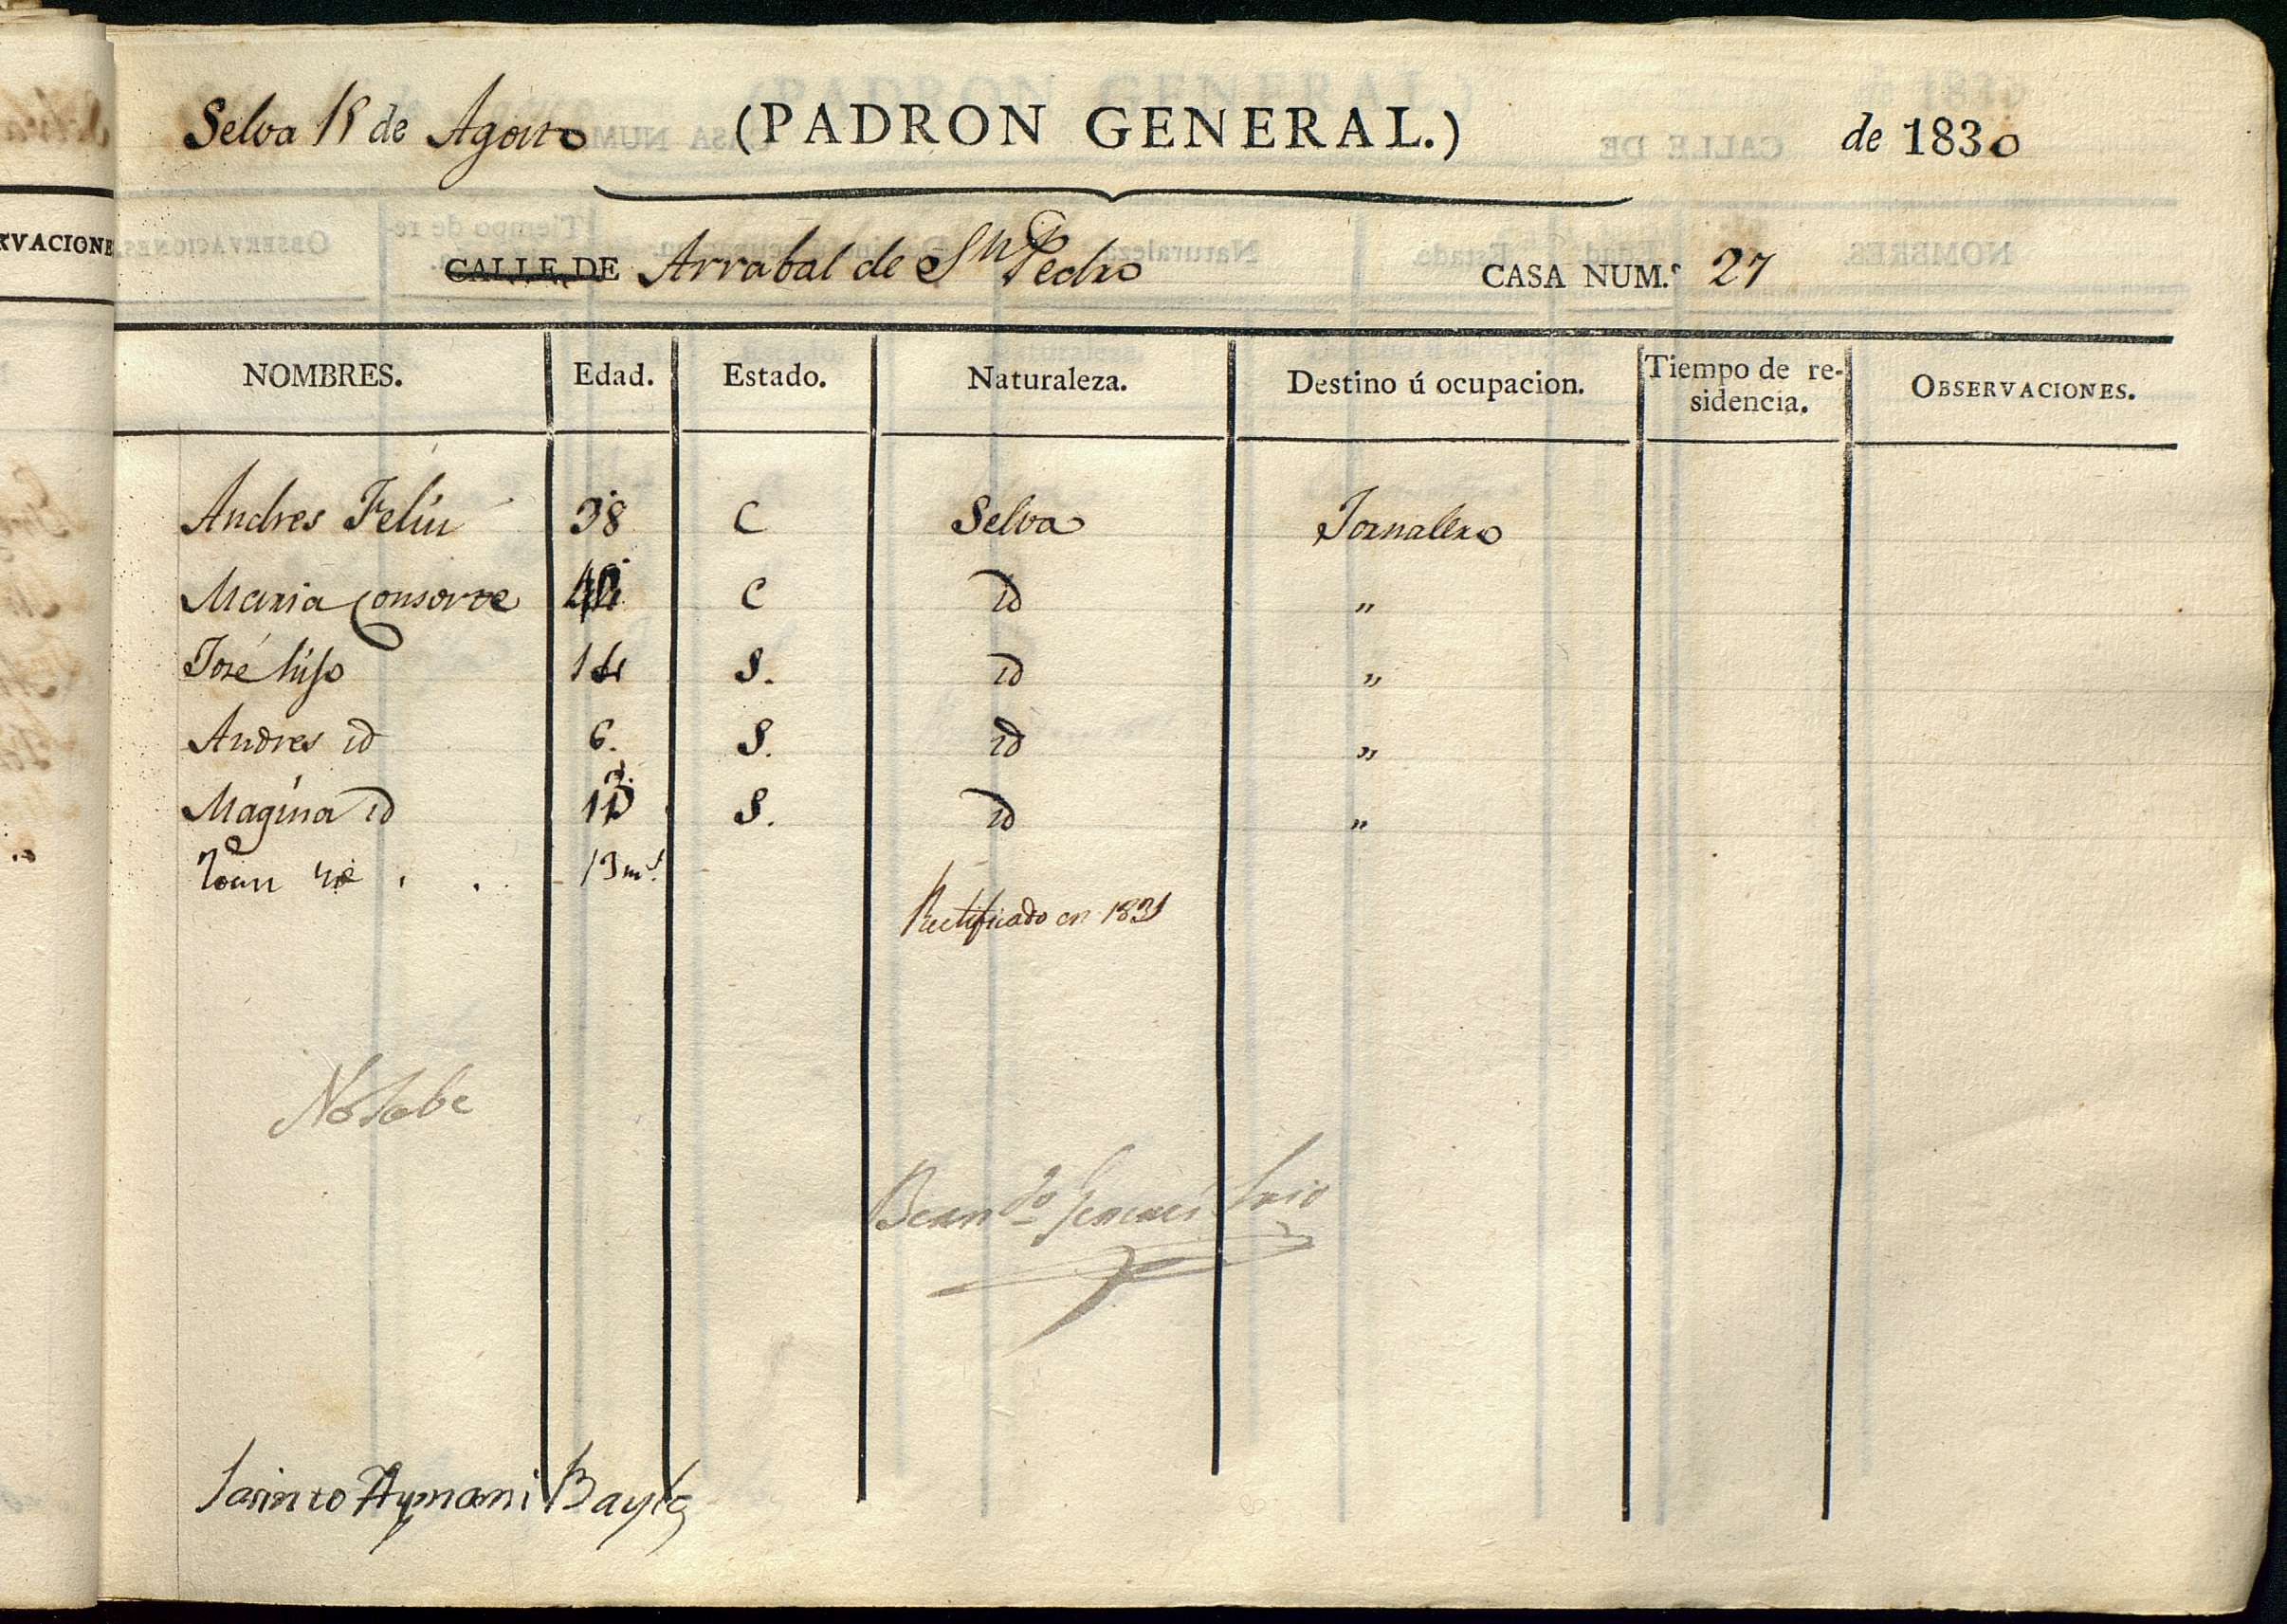 Selva 18 de Agosto (PADRON GENERAL.) de 1830
CALLE DE Arrabal de Sn Pedro CASA NUM.º 27
NOMBRES. Edad. Estado. Naturaleza. Destino ú ocupacion. Tiempo de re-sidencia. OBSERVACIONES.
Andres Feliu 38 C Selva Jornalero
Maria Consorte C id "
José hijo 14 S. id "
Andres id 6. S. id "
Magina id S. id "
Juan id 13 ms.
Rectificado en 1831
No Sabe
Jasinto Aymami Bayle
RVACIONE